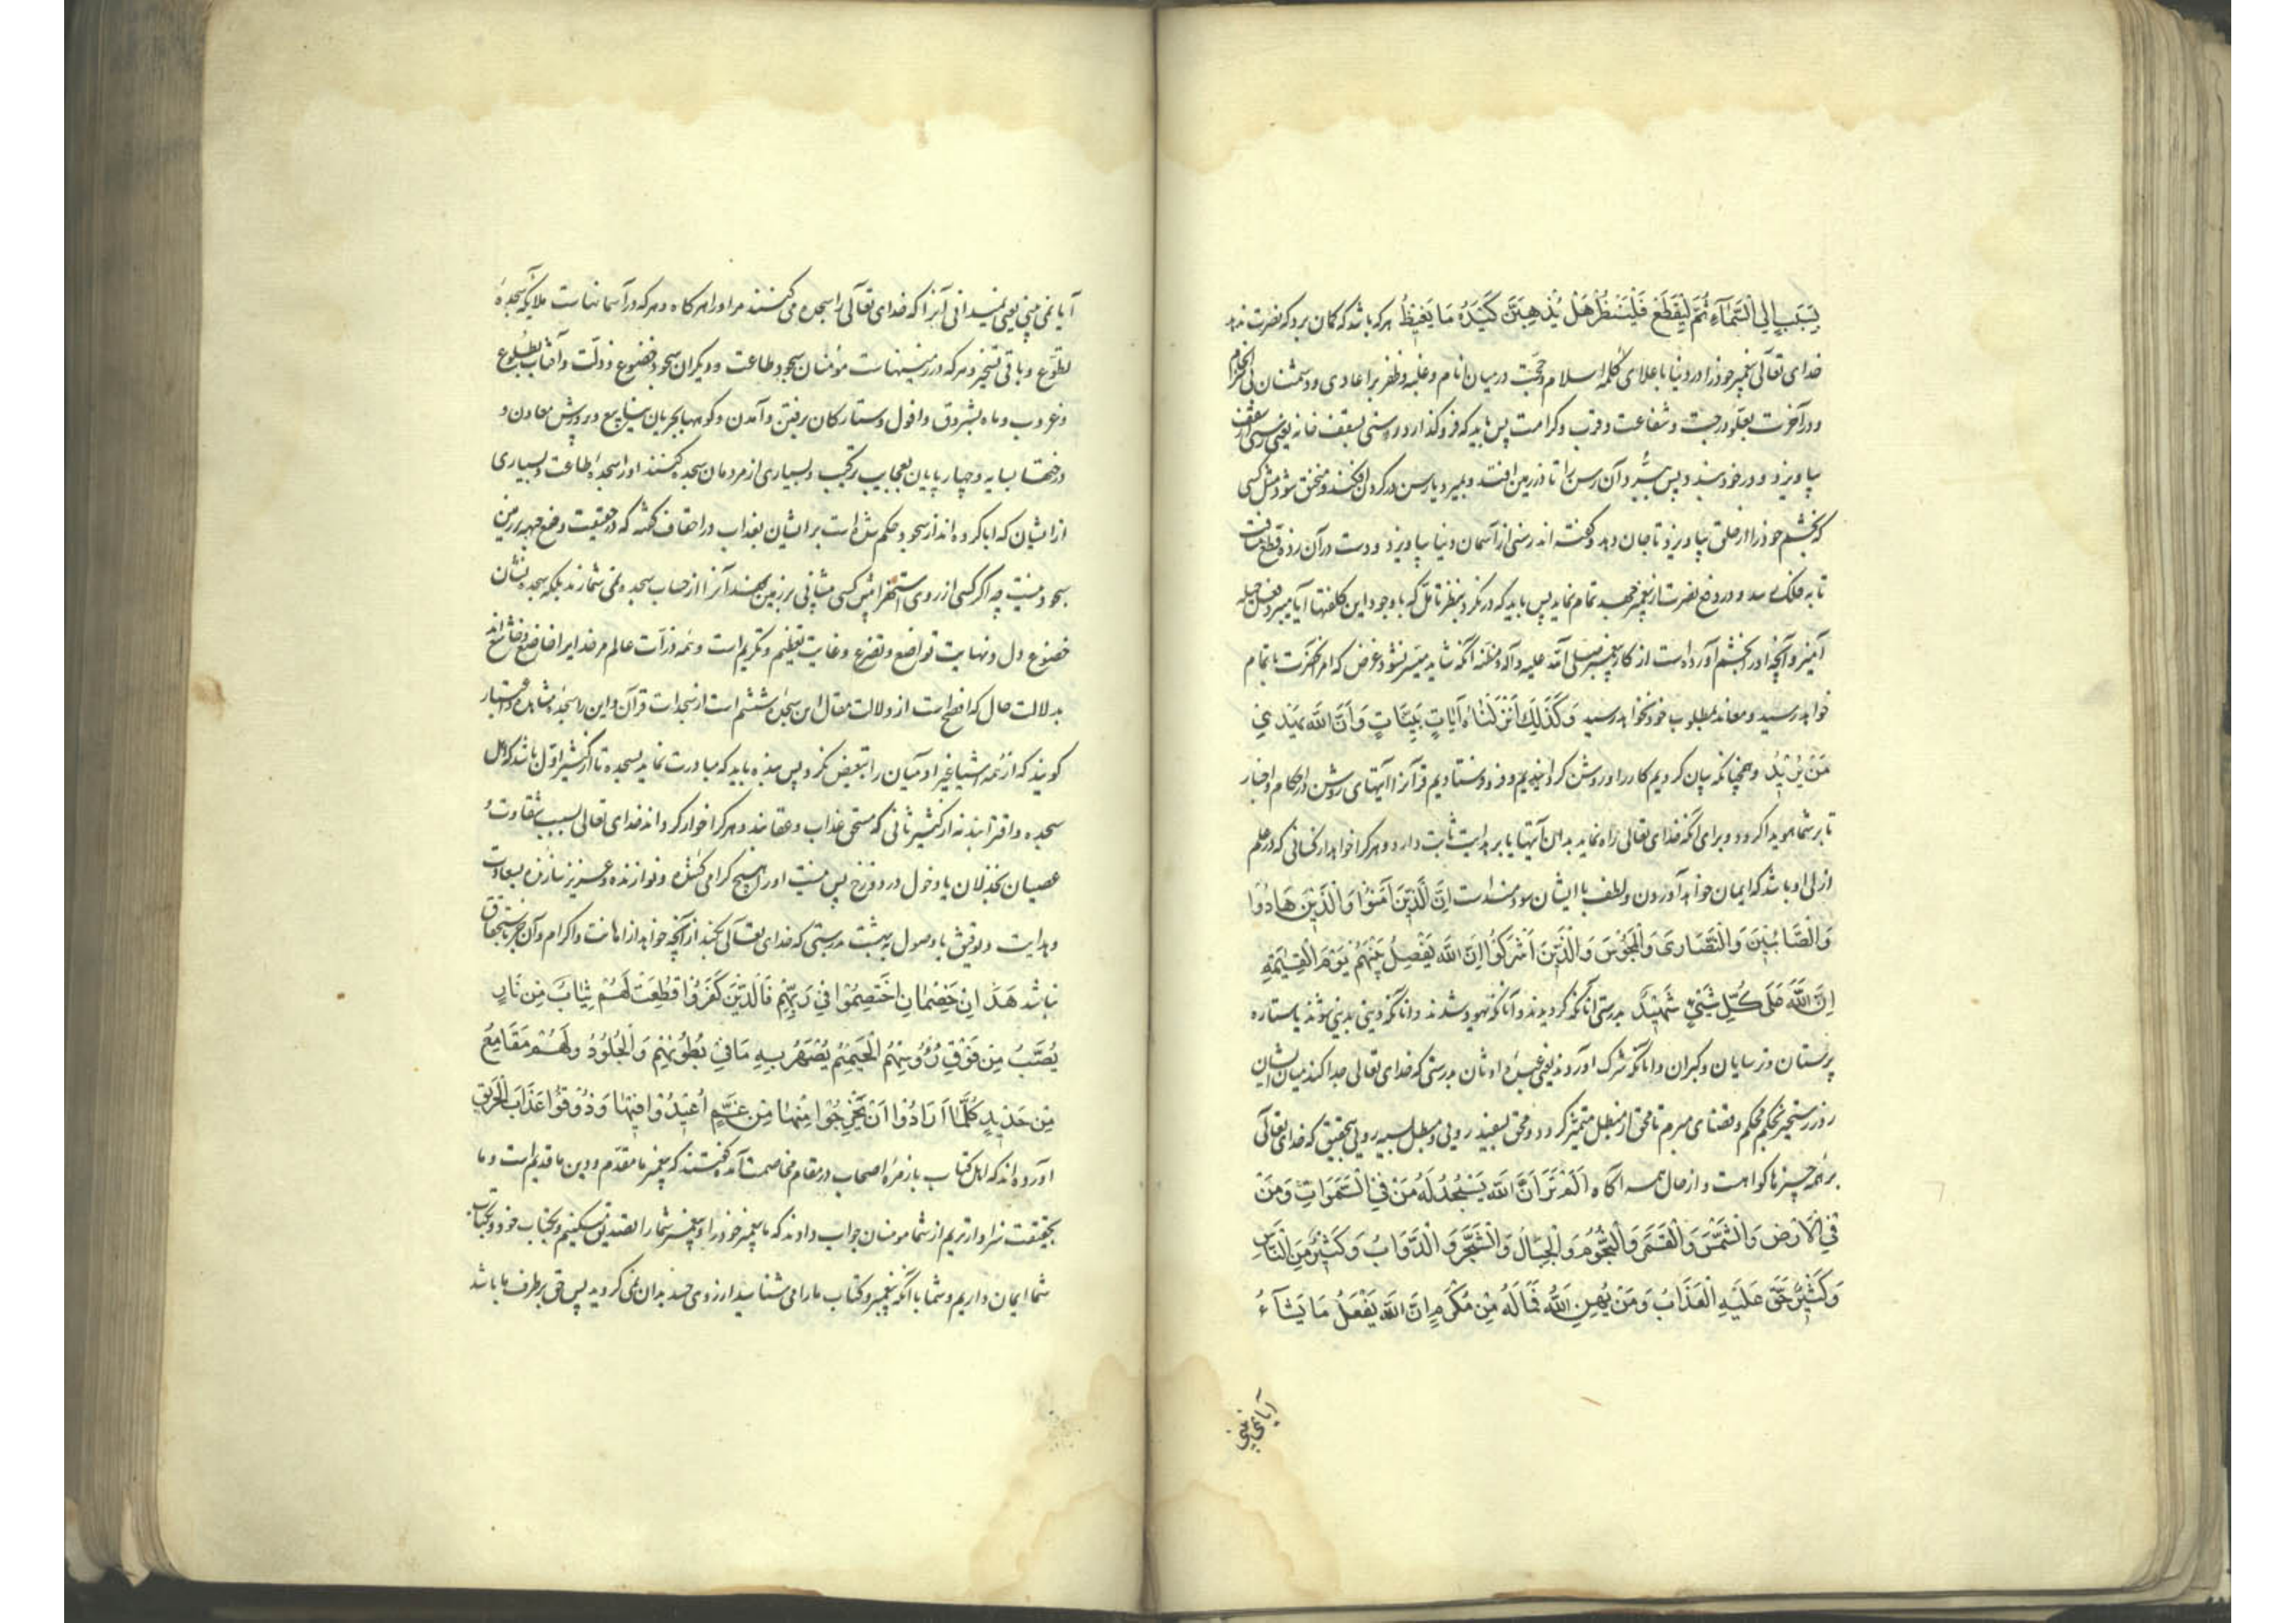 بِسَبَبٍ اِلَی السَّمَآءِ ثُمَّ لْیَقْطَعْ فَلْیَنْظُرْ هَلْ یُذْهِبَنَّ كَیْدُهُ مَا یَغِیظُ هر که باشد که گمان برد که نصرت ندهد
خدای تعالی پیغمبر خود را در دنیا باعلای کلمه اسلام و حجت در میان انام و غلبه و ظفر بر اعادی و دشمنان
و در آخرت بعلو درجت و شفاعت و قرب و کرامت پس باید که فرو گذارد رسنی بسقف خانه یعنی رسنی از سقف
بیاویزد و در خود بندد پس ببرد آن رسن را تا در زمین افتد و بمیرد یا رسن در گردن افکند و منخنق شود مثل کسی
که بخشم خود را از حلق بیاویزد تا جان دهد و گفته اند رسنی از آسمان دنیا بیاویزد و دست در آن زده قطع مسافت
تا به فلک رسد و در دفع نصرت از پیغمبر جهد تمام نماید پس باید که در نگرد بنظر تامل که با وجود این کلفتها آیا میبرد فعل حیله
آمیز او آنچه او را بخشم آورده است از کار پیغمبر صلی الله علیه و آله و مظنه آنکه شاید میسر نشود غرض که امر آنحضرت باتمام
خواهد رسید و معاند بمطلوب خود نخواهد رسید وَكَذَلِكَ اَنْزَلْنَاهُ آیَاتٍ بَیِّنَاتٍ وَاَنَّ اللهَ یَهْدِی
مَنْ یُرِیْدُ و همچنانکه بیان کردیم کار را و روشن گردانیدیم و فرو فرستادیم قرآن را آیتهای روشن در احکام و اخبار
تا بر شما هویدا گردد و برای آنکه خدای تعالی راه نماید بدان آیتها یا بر هدایت ثابت دارد و هر کرا خواهد از کسانی که در علم
ازلی او باشد که ایمان خواهد آوردن و لطف با ایشان سودمند است اِنَّ الَّذِیْنَ آمَنُوْا وَالَّذِیْنَ هَادُوْا
وَالصَّابِئِیْنَ وَالنَّصَارَی وَالْمَجُوْسَ وَالَّذِیْنَ اَشْرَكُوْا اِنَّ اللهَ یَفْصِلُ بَیْنَهُمْ یَوْمَ الْقِیٰمَةِ
اِنَّ اللهَ عَلَی كُلِّ شَیْیءٍ شَهِیْدٌ بدرستی آنانکه گرویدند و آنانکه یهود شدند و آنانکه از دینی بدینی شوند یا ستاره
پرستان و ترسایان و گبران و آنانکه شرک آوردند یعنی عبده اوثان بدرستی که خدای تعالی جدا کند میان ایشان
روز رستخیز بحکم محکم و قضای مبرم تا محق از مبطل متمیز گردد و محق بسفید رویی و مبطل بسیه رویی بتحقیق که خدای تعالی
بر همه چیزها گواهست و از حال همه آگاه اَلَمْ تَرَ اَنَّ اللهَ یَسْجُدُ لَهُ مَنْ فِی السَّمَوَاتِ وَمَنْ
فِی الْاَرْضِ وَالشَّمْسُ وَالْقَمَرُ وَالنُّجُوْمُ وَالْجِبَالُ وَالشَّجَرُ وَالدَّوَابُّ وَكَثِیْرٌ مِنَ النَّاسِ
وَكَثِیْرٌ حَقَّ عَلَیْهِ الْعَذَابُ وَمَنْ یُهِنِ اللهُ فَمَا لَهُ مِنْ مُكْرِمٍ اِنَّ اللهَ یَفْعَلُ مَا یَشَآءُ
آیا نمی بینی
آیا نمی بینی یعنی نمیدانی آنرا که خدای تعالی را سجده می کنند مر او را هر گاه و هر که در آسمانهاست ملایکه سجده
تطوع و باقی تسخیر و هر که در زمینهاست مومنان سجود طاعت و دیگران سجود خضوع و ذلت و آفتاب بطلوع
و غروب و ماه بشروق و افول و ستارگان برفتن و آمدن و کوهها بجریان ینابیع و پرورش معادن و
درختها بسایه و چهارپایان بعجایب ترکیب و بسیاری از مردمان سجده کنند او را سجده طاعت و بسیاری
از ایشان که ابا کرده اند از سجود حکم شده است بر ایشان بعذاب در احقاف گفته که در حقیقت وضع جبهه بر زمین
سجود نیست چه اگر کسی از روی استهزا پیش کسی پیشانی بر زمین نهد آنرا از حساب سجده نمی شمارند بلکه سجده نشان
خضوع دل و نهایت تواضع و تضرع و غایت تعظیم و تکریم است و همه ذرات عالم مر خدای را خاضع و خاشع اند
بدلالت حال که افصح است از دلالت مقال این سجده ششم است از سجدات قرآن و این را سجده مشاهده و اعتبار
گویند که از همه اشیا غیر آدمیان را تبعیض نکرد پس بنده باید که مبادرت نماید بسجده تا از کثیر اول باشد که اهل
سجده و اقترابند نه از کثیر ثانی که مستحق عذاب و عقابند و هر کرا خوار گرداند خدای تعالی بسبب شقاوت
عصیان بخذلان یا دخول در دوزخ پس نیست او را هیچ گرامی کننده و نوازنده و عزیز سازنده بسعادت
و هدایت و توفیق یا وصول ببهشت بدرستی که خدای تعالی بکند از آنچه خواهد از اهانت و اکرام و آن جز باستحقاق
نباشد هَذَانِ خَصْمَانِ اخْتَصَمُوْا فِی رَبِّهِمْ فَالَّذِیْنَ كَفَرُوْا قُطِّعَتْ لَهُمْ ثِیَابٌ مِنْ نَارٍ
یُصَبُّ مِنْ فَوْقِ رُؤُسِهِمُ الْحَمِیْمُ یُصْهَرُ بِهِ مَا فِیْ بُطُوْنِهِمْ وَالْجُلُوْدُ وَلَهُمْ مَقَامِعُ
مِنْ حَدِیْدٍ كُلَّمَا اَرَادُوْا اَنْ یَخْرُجُوْا مِنْهَا مِنْ غَمٍّ اُعِیْدُوْا فِیْهَا وَذُوْقُوْا عَذَابَ الْحَرِیْقِ
آورده اند که اهل کتاب با زمره اصحاب در مقام مخاصمت آمده گفتند که پیغمبر ما مقدم و دین ما قدیم است و ما
بحقیقت سزاوارتریم از شما مومنان جواب دادند که ما پیغمبر خود را و پیغمبر شما را تصدیق میکنیم و بکتاب خود و بکتاب
شما ایمان داریم و شما با آنکه پیغمبر و کتاب ما را می شناسید از روی حسد بدان نمی گروید پس حق بر طرف ما باشد